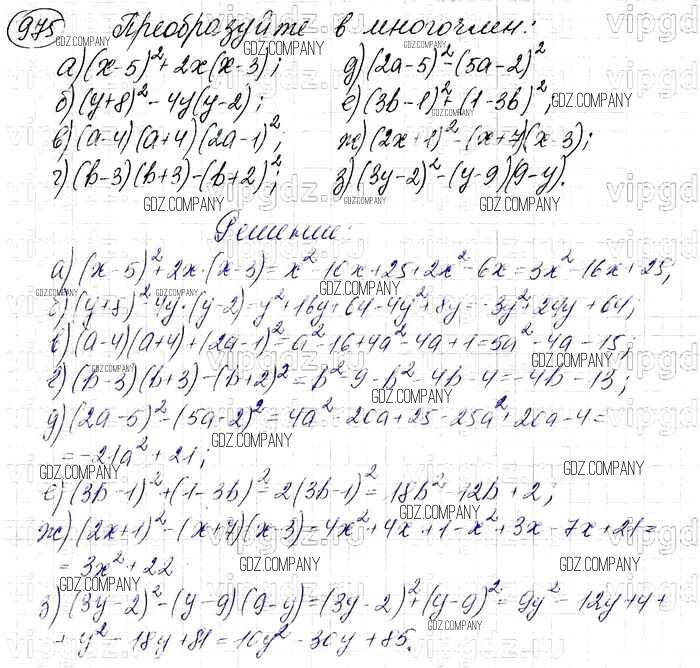 975 Преобразуйте в многочлен:
а) (x-5)²+2x(x-3); д) (2a-5)²-(5a-2)²
б) (y+8)²-4y(y-2); е) (3b-1)²+(1-3b)²;
в) (a-4)(a+4)(2a-1)²; ж) (2x+1)²-(x+7)(x-3);
г) (b-3)(b+3)-(b+2)²; з) (3y-2)²-(y-9)(9-y).
Решение:
а) (x-5)²+2x·(x-3)=x²-10x+25+2x²-6x=3x²-16x+25;
б) (y+8)²-4y·(y-2)=y²+16y+64-4y²+8y=-3y²+24y+64;
в) (a-4)(a+4)+(2a-1)²=a²-16+4a²-4a+1=5a²-4a-15;
г) (b-3)(b+3)-(b+2)²=b²-9-b²-4b-4=-4b-13;
д) (2a-5)²-(5a-2)²=4a²-20a+25-25a²+20a-4=
=-21a²+21;
е) (3b-1)²+(1-3b)²=2(3b-1)²=18b²-12b+2;
ж) (2x+1)²-(x+7)(x-3)=4x²+4x+1-x²+3x-7x+21=
=3x²+22
з) (3y-2)²-(y-9)(9-y)=(3y-2)²+(y-9)²=9y²-12y+4+
+y²-18y+81=10y²-30y+85.
GDZ.COMPANY
vipgdz.ru